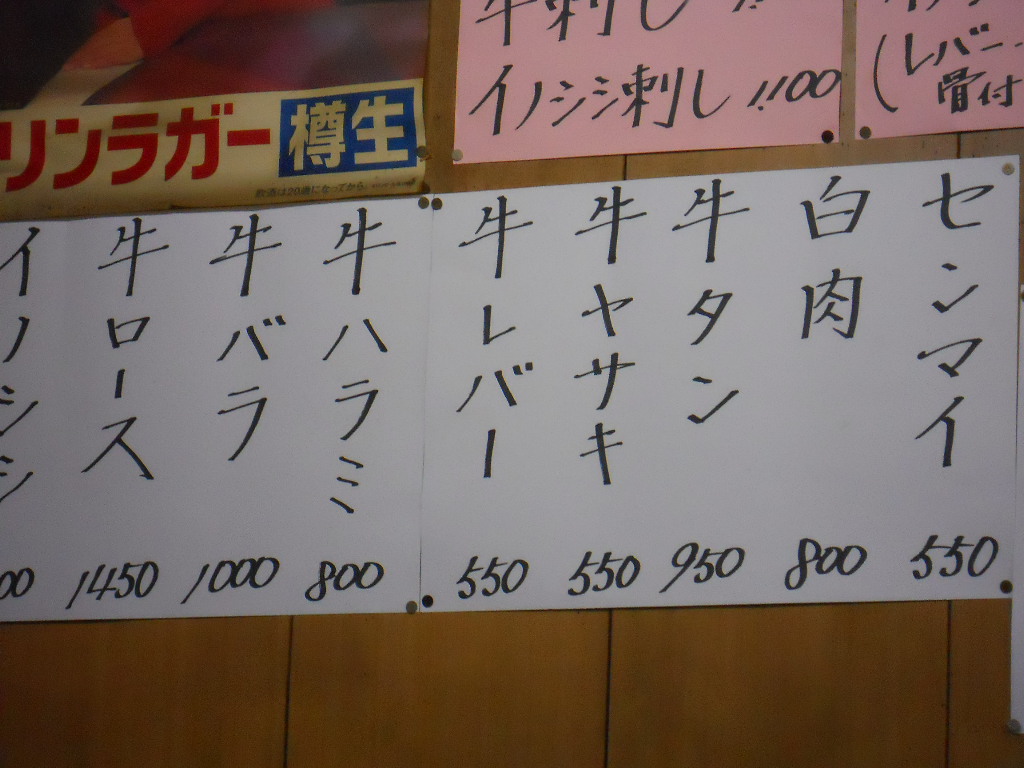 リンラガー 樽生
飲酒は20歳になってから。
牛刺し
イノシシ刺し 1,100
(レバー・
骨付
センマイ 550
白肉 800
牛タン 950
牛ヤサキ 550
牛レバー 550
牛ハラミ 800
牛バラ 1000
牛ロース 1450
イノシシ 00